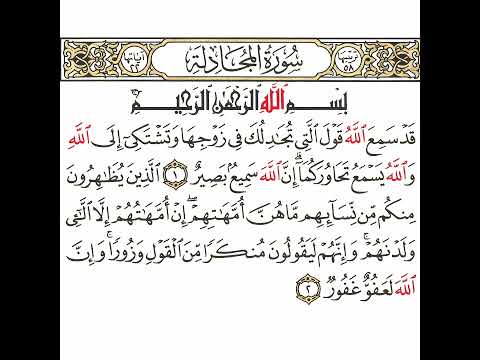 ترتيبها ٥٨ سُورَةُ المُجَادلَة آياتها ٢٢
بِسْمِ ٱللَّهِ ٱلرَّحْمَٰنِ ٱلرَّحِيمِ
قَدْ سَمِعَ ٱللَّهُ قَوْلَ ٱلَّتِي تُجَٰدِلُكَ فِي زَوْجِهَا وَتَشْتَكِيٓ إِلَى ٱللَّهِ
وَٱللَّهُ يَسْمَعُ تَحَاوُرَكُمَآۚ إِنَّ ٱللَّهَ سَمِيعُۢ بَصِيرٌ ١ ٱلَّذِينَ يُظَٰهِرُونَ
مِنكُم مِّن نِّسَآئِهِم مَّا هُنَّ أُمَّهَٰتِهِمْۖ إِنْ أُمَّهَٰتُهُمْ إِلَّا ٱلَّٰٓـِٔي
وَلَدْنَهُمْۚ وَإِنَّهُمْ لَيَقُولُونَ مُنكَرٗا مِّنَ ٱلْقَوْلِ وَزُورٗاۚ وَإِنَّ
ٱللَّهَ لَعَفُوٌّ غَفُورٞ ٢